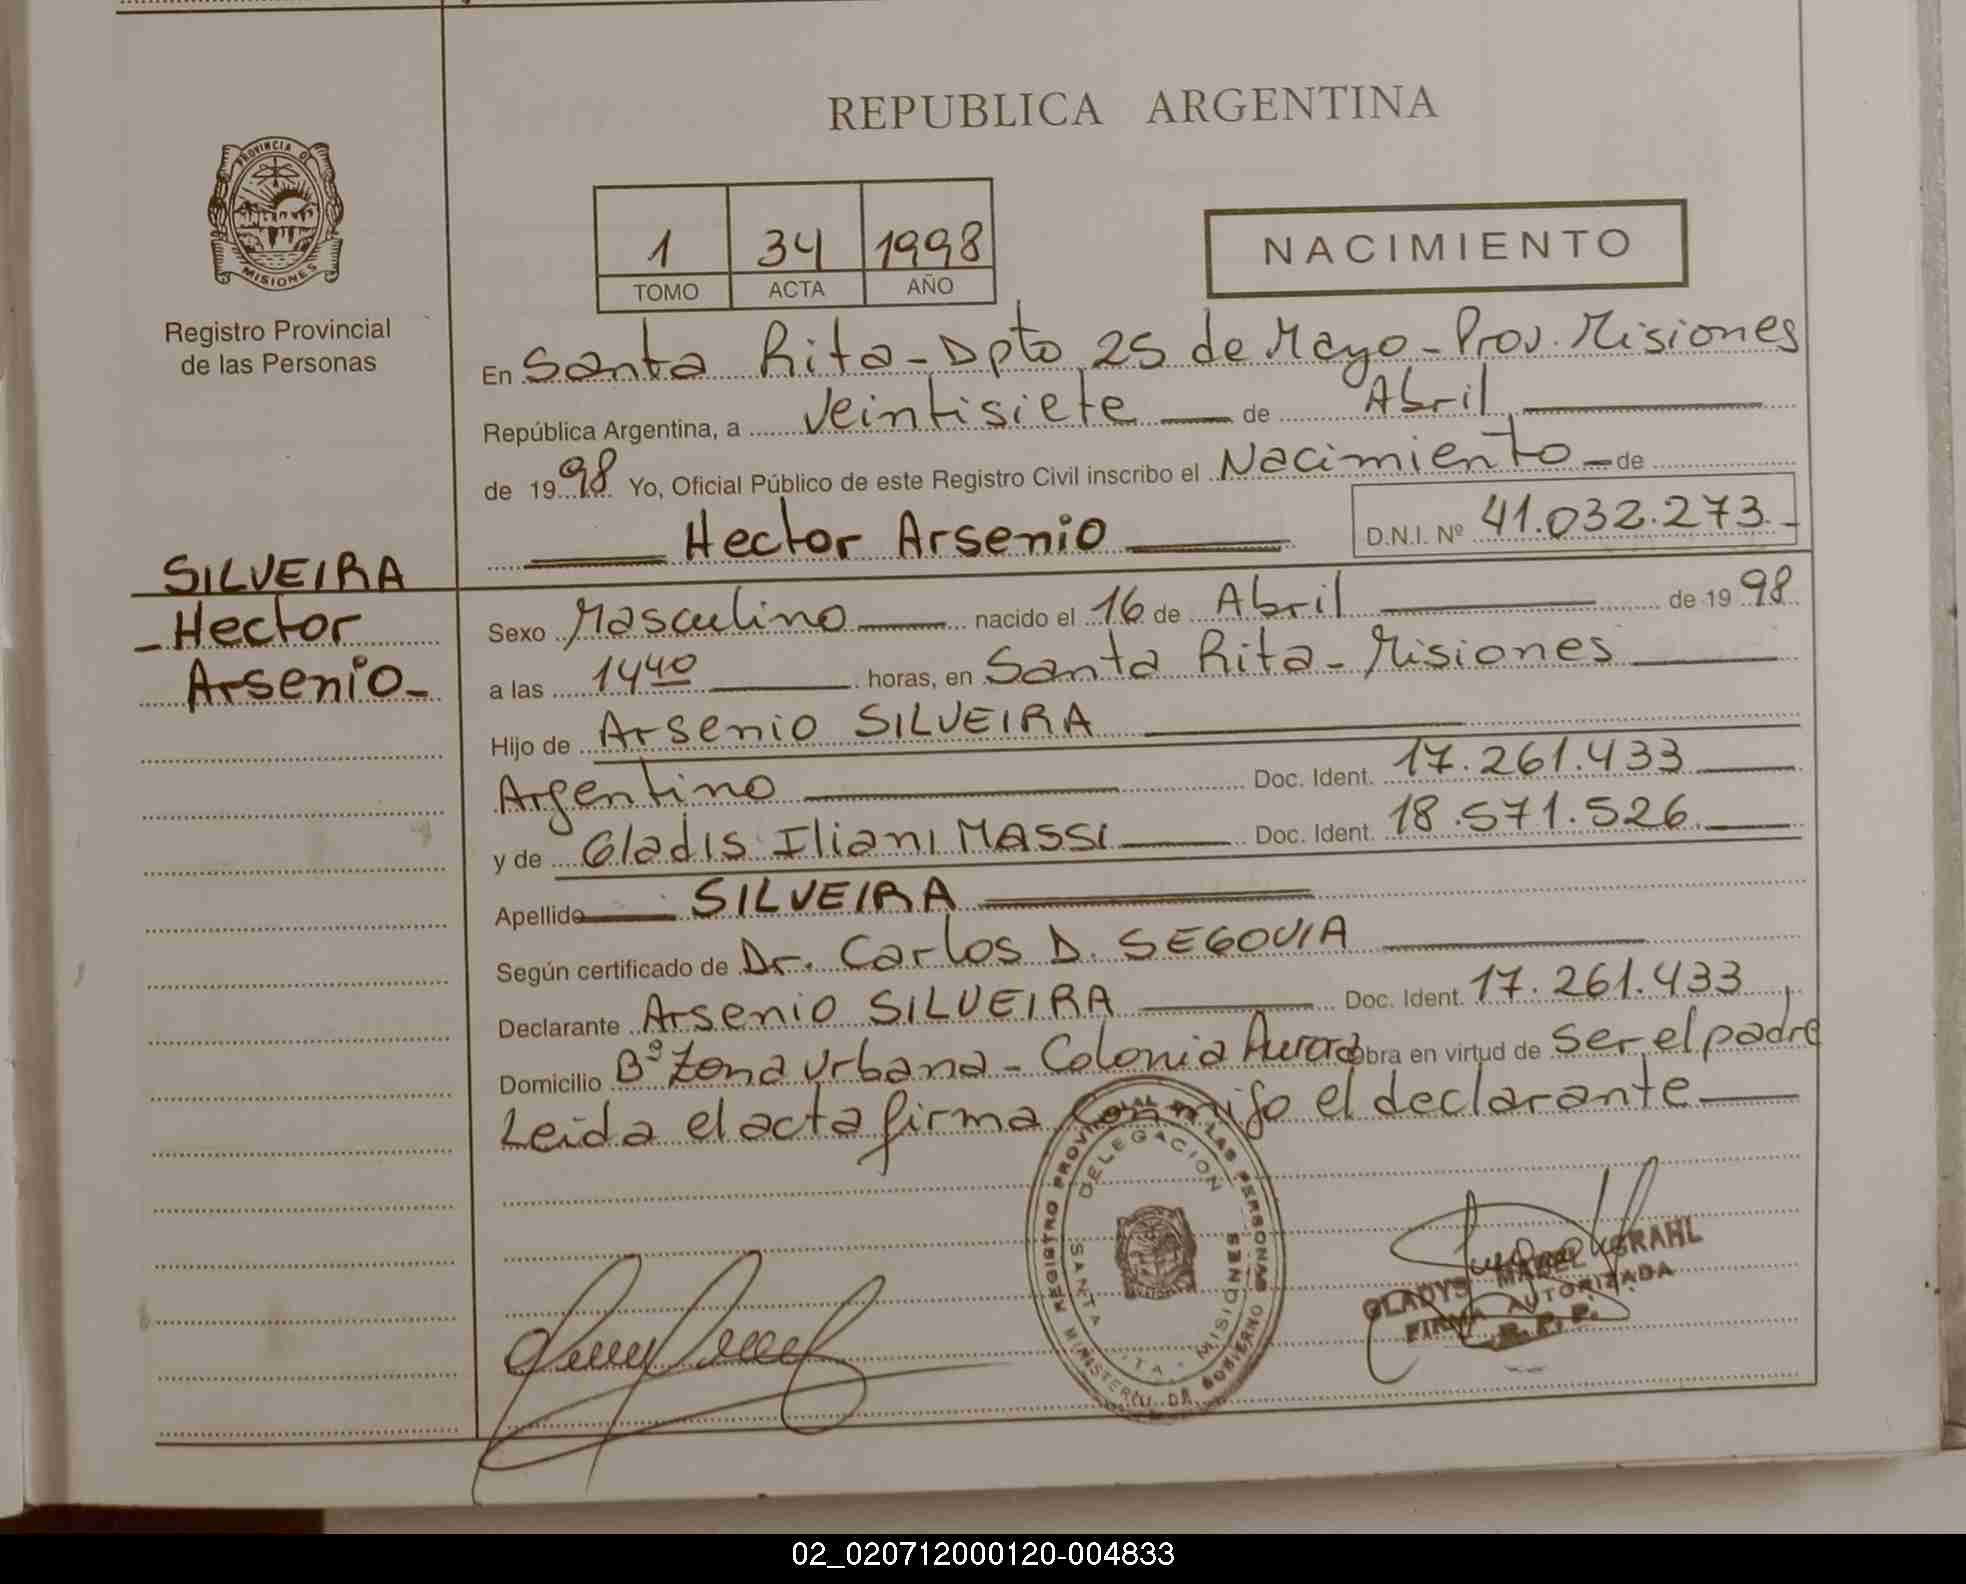 REPUBLICA ARGENTINA
PROVINCIA D
MISIONES
Registro Provincial
de las Personas
1 34 1998
TOMO ACTA AÑO
NACIMIENTO
En Santa Rita - Dpto 25 de Mayo - Prov. Misiones
República Argentina, a veintisiete de Abril
de 1998 Yo, Oficial Público de este Registro Civil inscribo el Nacimiento de
Hector Arsenio D.N.I. Nº 41.032.273.-
SILVEIRA
- Hector
Arsenio -
Sexo Masculino nacido el 16 de Abril de 1998
a las 1440 horas, en Santa Rita - Misiones
Hijo de Arsenio SILVEIRA
Argentino Doc. Ident. 17.261.433
y de Gladis Iliani MASSI Doc. Ident. 18.571.526
Apellido SILVEIRA
Según certificado de Dr. Carlos D. SEGOVIA
Declarante Arsenio SILVEIRA Doc. Ident. 17.261.433
Domicilio Bº Zona Urbana - Colonia Aurora obra en virtud de ser el padre
Leida el acta firma conmigo el declarante
REGISTRO PROVINCIAL DE LAS PERSONAS
DELEGACION
SANTA ITA - MISIONES
MINISTERIO DE GOBIERNO
GLADYS MABEL KRAHL
FIRMA AUTORIZADA
R. P. P.
02_020712000120-004833